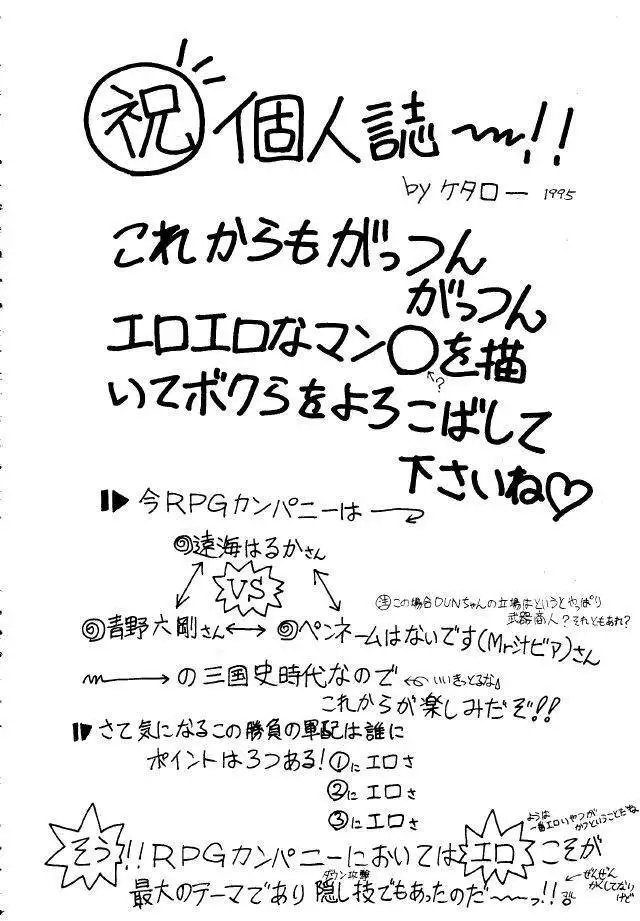 祝 個人誌〜!!
by ケタロー 1995
これからもがっつん
がっつん
エロエロなマン○を描
?
いてボクらをよろこばして
下さいね♡
今RPGカンパニーは
遠海はるかさん
VS
注この場合DUNちゃんの立場はというとやっぱり
武器商人?それともあれ?
青野六剛さん↔ペンネームはないです(Mr.汁ビア)さん
の三国史時代なので ←いいきっとるな。
これからが楽しみだぞ!!
さて気になるこの勝負の軍配は誰に
ポイントは3つある!①にエロさ
②にエロさ
③にエロさ
ようは
一番エロいやつが
かつということだね
そう!!RPGカンパニーにおいてはエロこそが
ダウン攻撃
最大のテーマであり隠し技でもあったのだ〜っ!!
←ぜんぜん
かくしてない
けど